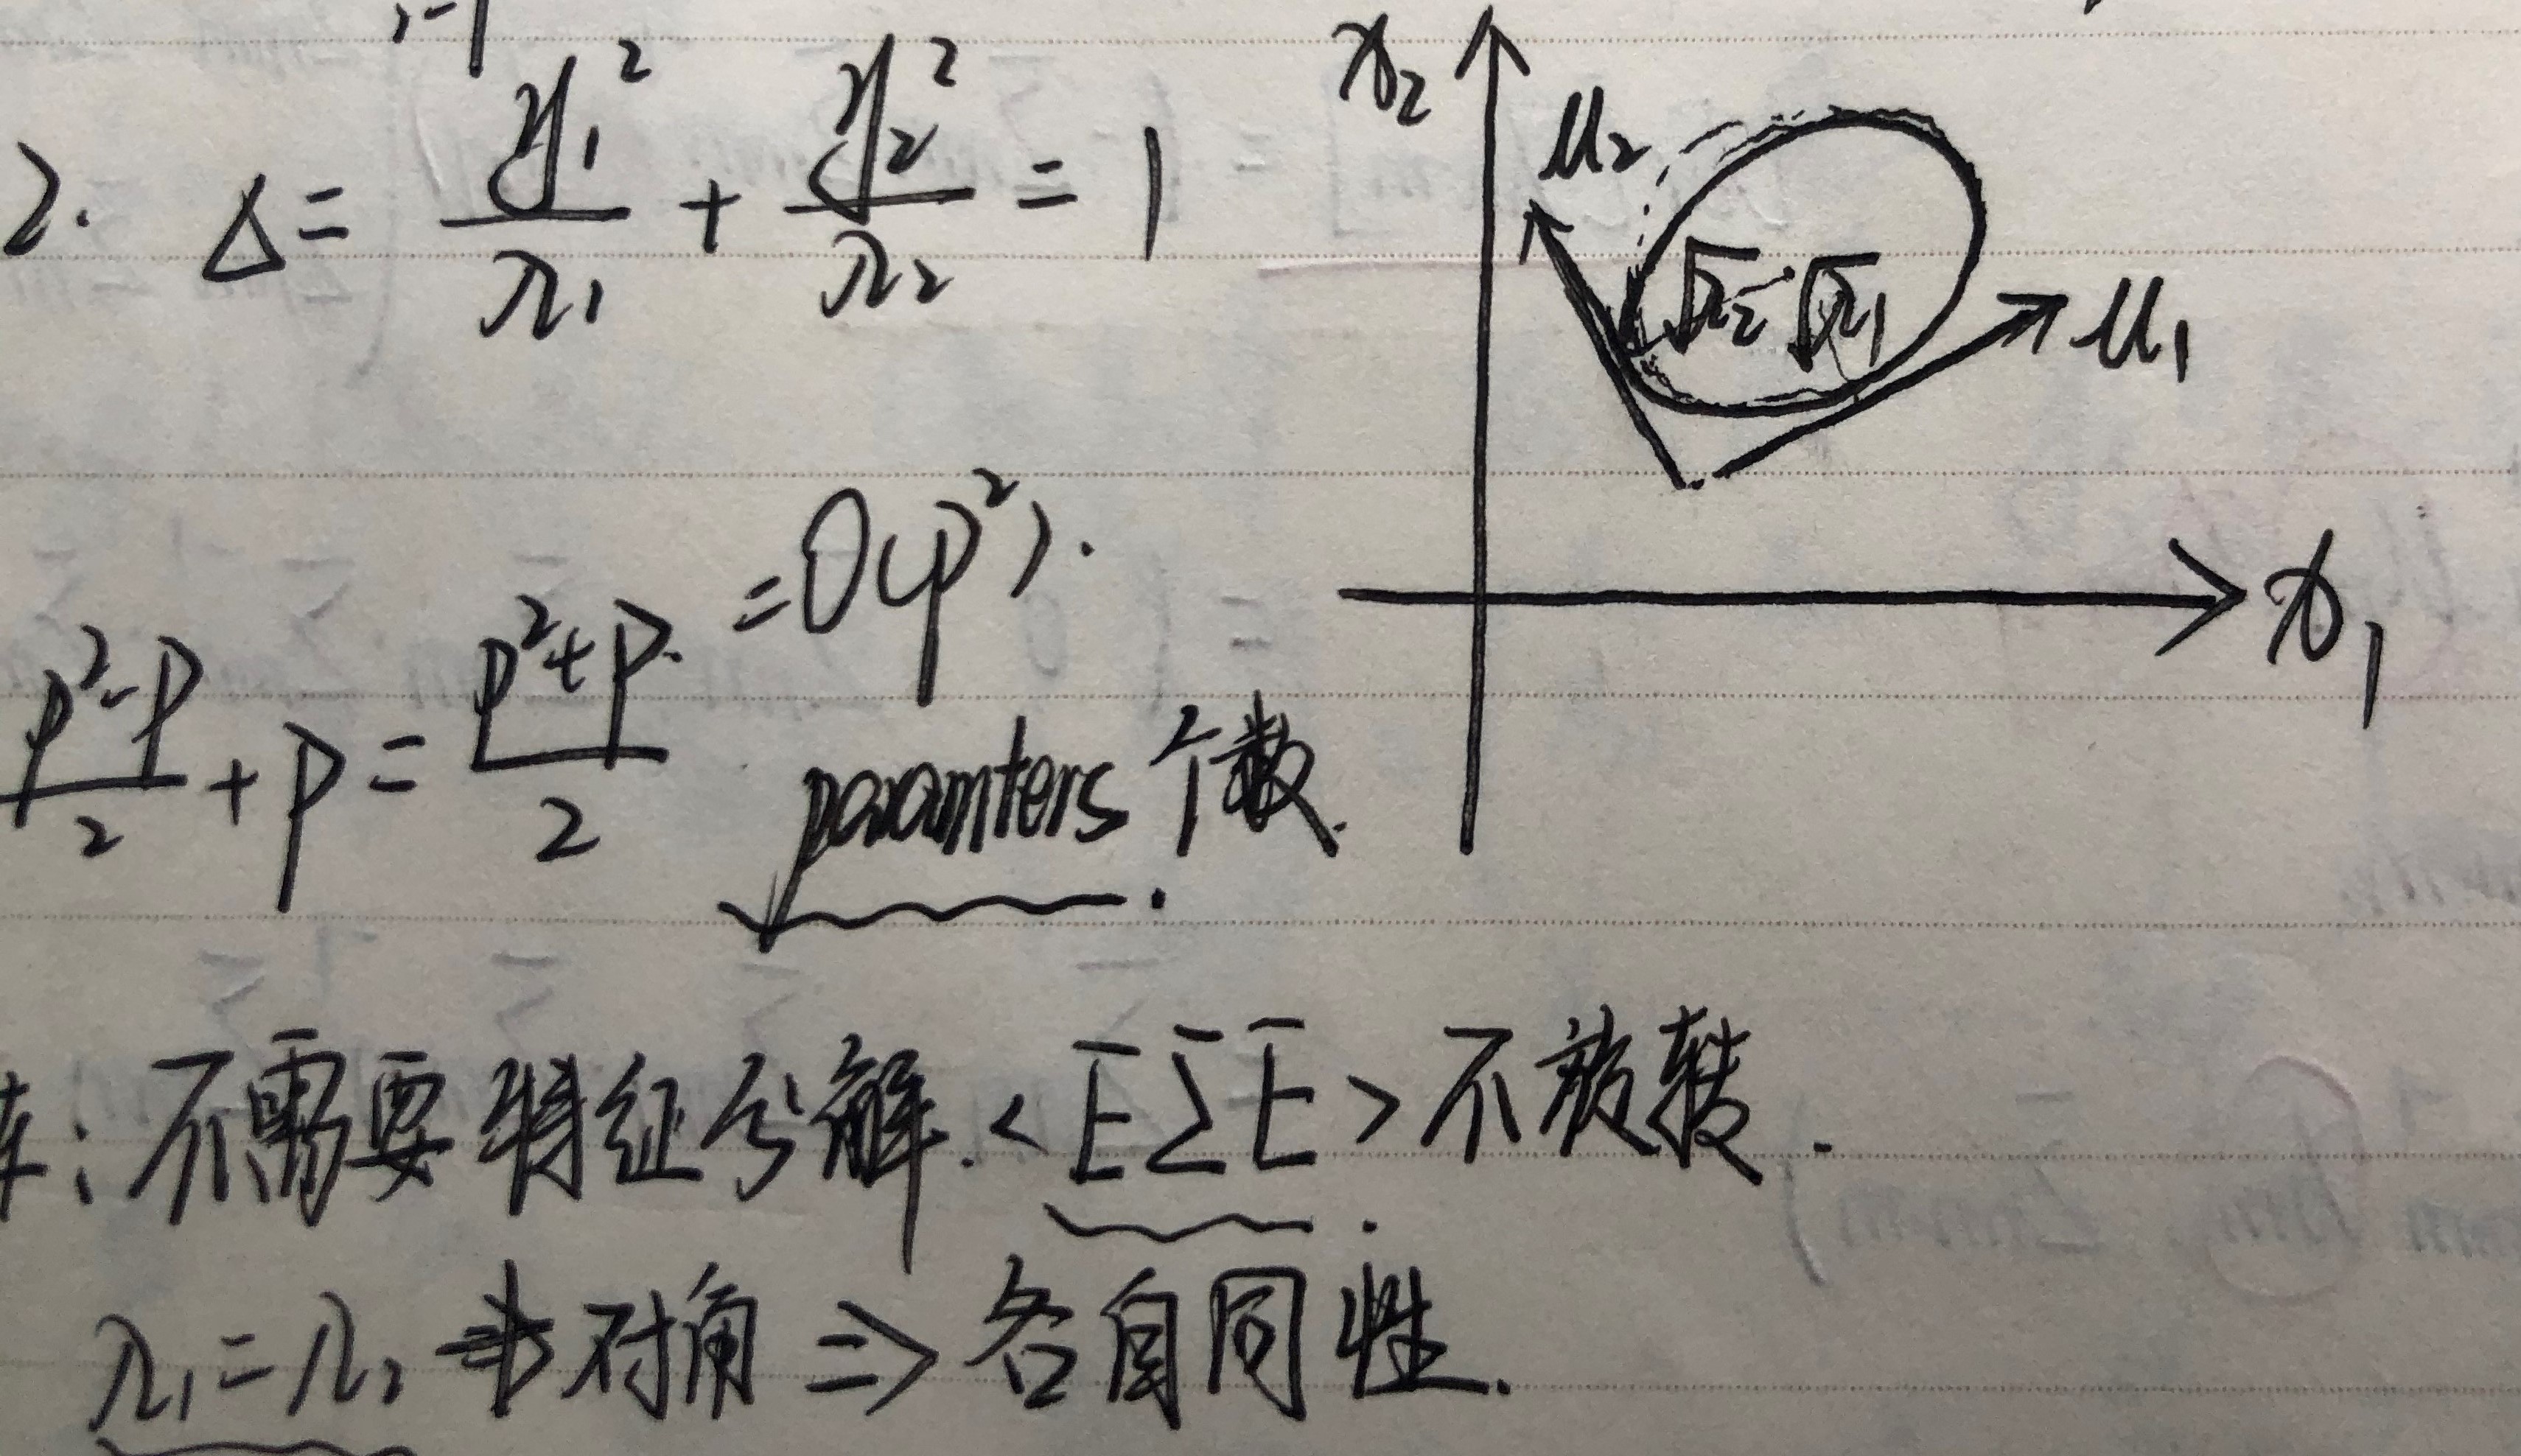 2. Δ = y₁²/λ₁ + y₂²/λ₂ = 1
x₂
u₂
√λ₂ √λ₁
u₁
x₁
(p²-p)/2 + p = (p²+p)/2 = O(p²).
paramters 个数.
: 不需要特征分解.<EΣE>不旋转.
λ₁=λ₂ 对角 ⇒ 各自同性.